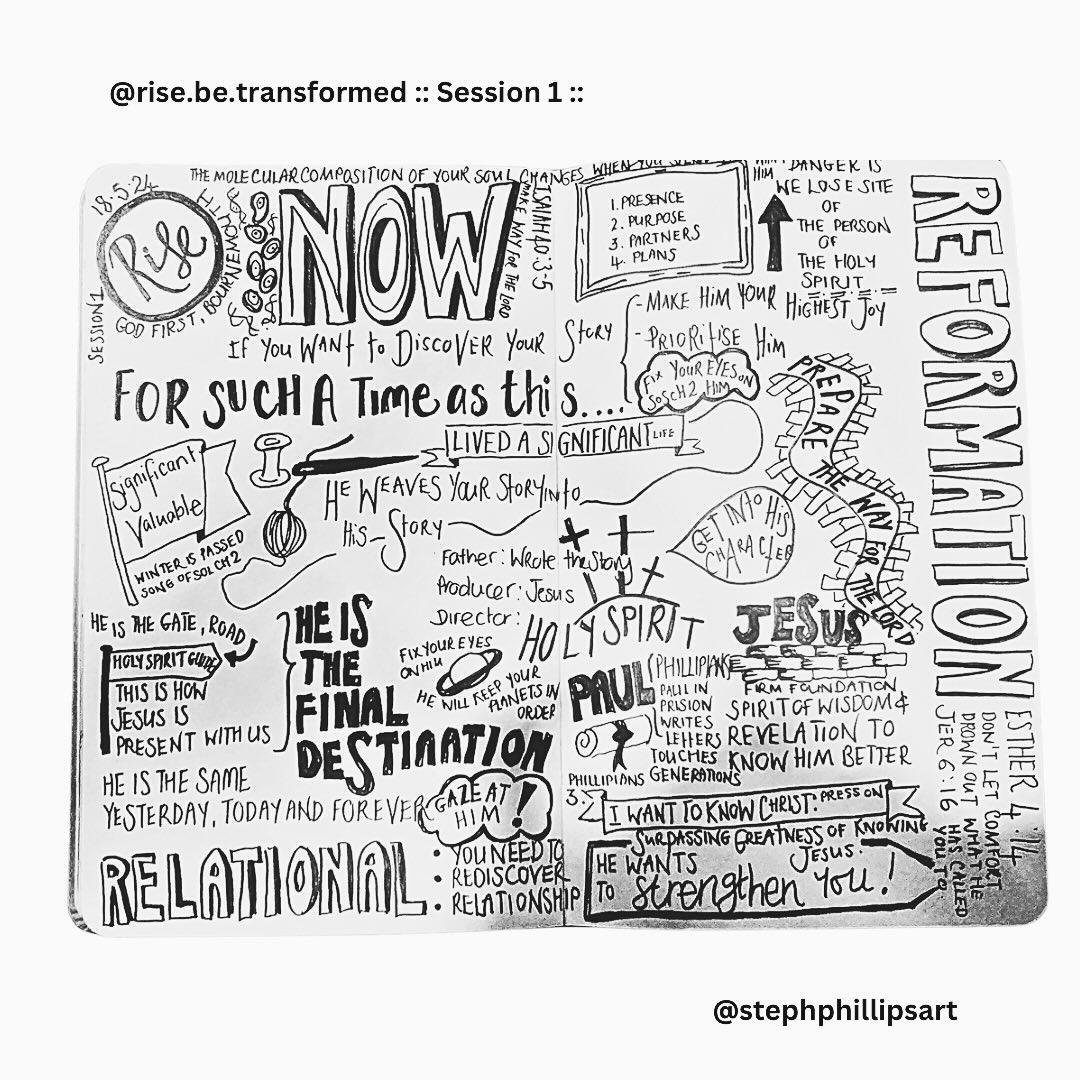 @rise.be.transformed :: Session 1 ::
THE MOLECULAR COMPOSITION OF YOUR SOUL CHANGES WHEN YOU
18.5.24
Rise
SESSION 1
GOD FIRST,
NOW
MAKE WAY FOR THE LORD
ISAIAH 40:3-5
IF YOU WANT to DISCOVER YOUR STORY
- MAKE HIM YOUR HIGHEST JOY
- PRIORITISE HIM
FIX YOUR EYES ON HIM
SoSCH2
1. PRESENCE
2. PURPOSE
3. PARTNERS
4. PLANS
HIM
DANGER IS
WE LOSE SITE
OF
THE PERSON
OF
THE HOLY
SPIRIT
REFORMATION
FOR SUCH A Time as this....
I LIVED A SIGNIFICANT LIFE
Significant
Valuable
WINTER IS PASSED
SONG OF SOL CH2
HE WEAVES YOUR STORY INto
His-Story
GET INTO HIS
CHARACTER
PREPARE THE WAY FOR THE LORD
Father: Wrote the Story
Producer: Jesus
Director: HOLY SPIRIT
HE IS THE GATE, ROAD
HOLY SPIRIT GUIDE
THIS IS HOW
JESUS IS
PRESENT WITH US
HE IS
THE
FINAL
DESTINATION
FIX YOUR EYES
ON HIM
HE WILL KEEP YOUR
PLANETS IN
ORDER
PAUL
(PHILLIPIANS
PAUL IN
PRISION
WRITES
LETTERS
TOUCHES
GENERATIONS
PHILLIPIANS
3:
JESUS
FIRM FOUNDATION
SPIRIT OF WISDOM &
REVELATION TO
KNOW HIM BETTER
HE IS THE SAME
YESTERDAY, TODAY AND FOREVER
GAZE AT
HIM !
I WANT TO KNOW CHRIST: PRESS ON
SURPASSING GREATNESS OF KNOWING
JESUS.
RELATIONAL :
• YOU NEED TO
• REDISCOVER
• RELATIONSHIP
HE WANTS
TO strengthen YOU!
ESTHER 4:14
DON'T LET COMFORT
DROWN OUT WHAT HE
HAS CALLED
YOU TO.
JER 6:16
@stephphillipsart